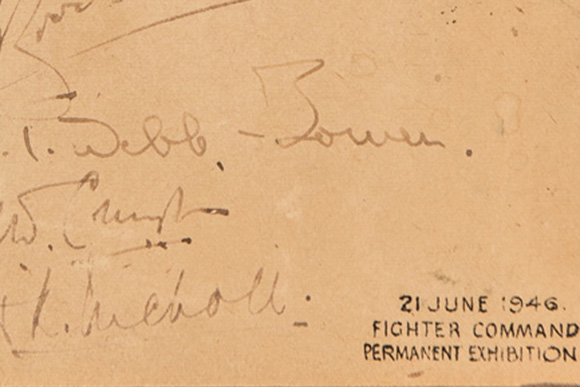 .I. Webb-Bowen.
W.
H.R. Nicholl.
21 JUNE 1946.
FIGHTER COMMAND
PERMANENT EXHIBITION.